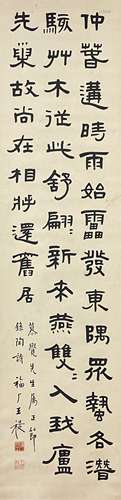 仲萅遘時雨始靁發東隅眾蟄各潛
駭艸木從此舒翩〻新來燕雙〻入我廬
先巢故尚在相將還舊居
先生屬正節
錄陶詩 福厂王禔